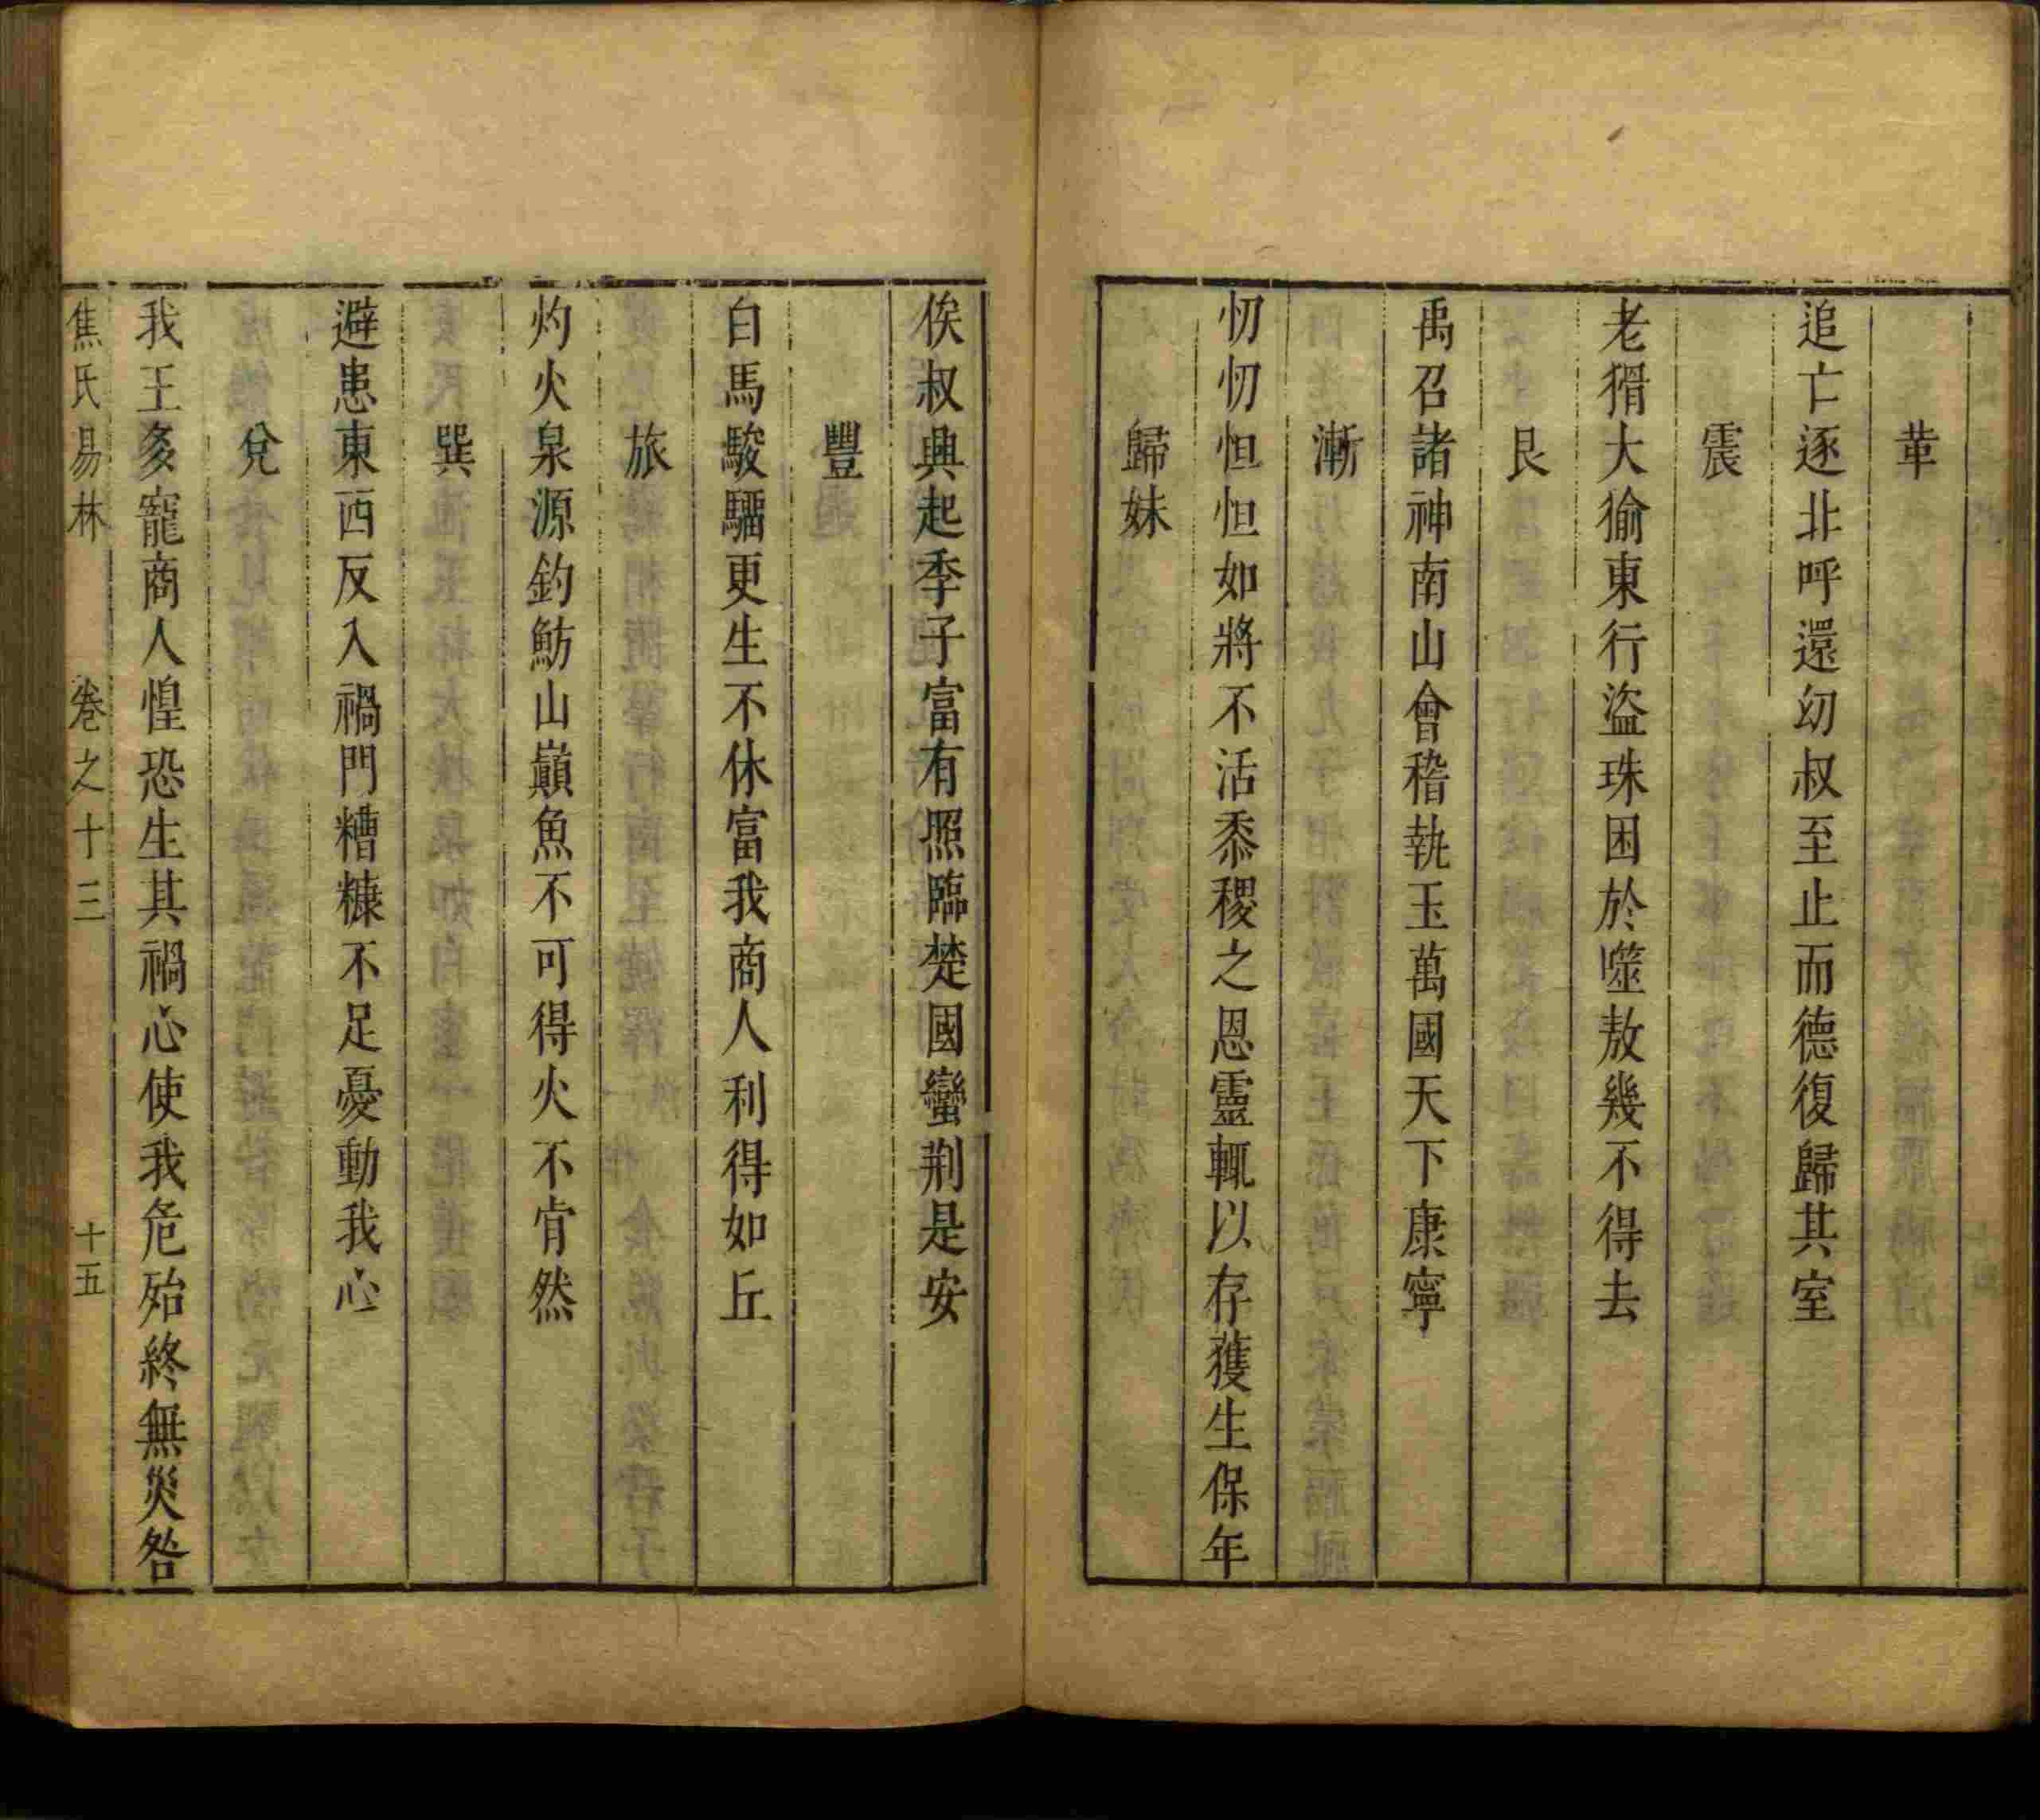 革
追亡逐北呼還幼叔至止而德復歸其室
震
老猾大偷東行盜珠困於噬敖幾不得去
艮
禹召諸神南山會稽執玉萬國天下康寧
漸
忉忉怛怛如將不活黍稷之恩靈輒以存獲生保年
歸妹
俟叔興起季子富有照臨楚國蠻荆是安
豐
白馬駿騮更生不休富我商人利得如丘
旅
灼火泉源釣魴山巔魚不可得火不肯然
巽
避患東西反入禍門糟糠不足憂動我心
兌
我王多寵商人惶恐生其禍心使我危殆終無災咎
焦氏易林 卷之十三 十五